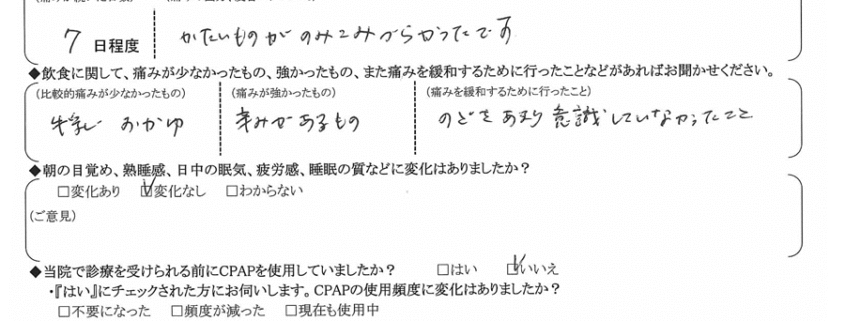 7 日程度 かたいものが のみこみづらかったです
◆飲食に関して、痛みが少なかったもの、強かったもの、また痛みを緩和するために行ったことなどがあればお聞かせください。
(比較的痛みが少なかったもの) (痛みが強かったもの) (痛みを緩和するために行ったこと)
牛乳 おかゆ 辛みがあるもの のどを あまり 意識していなかったこと
◆朝の目覚め、熟睡感、日中の眠気、疲労感、睡眠の質などに変化はありましたか?
□変化あり ☑変化なし □わからない
(ご意見)
◆当院で診療を受けられる前にCPAPを使用していましたか? □はい ☑いいえ
・『はい』にチェックされた方にお伺いします。CPAPの使用頻度に変化はありましたか?
□不要になった □頻度が減った □現在も使用中